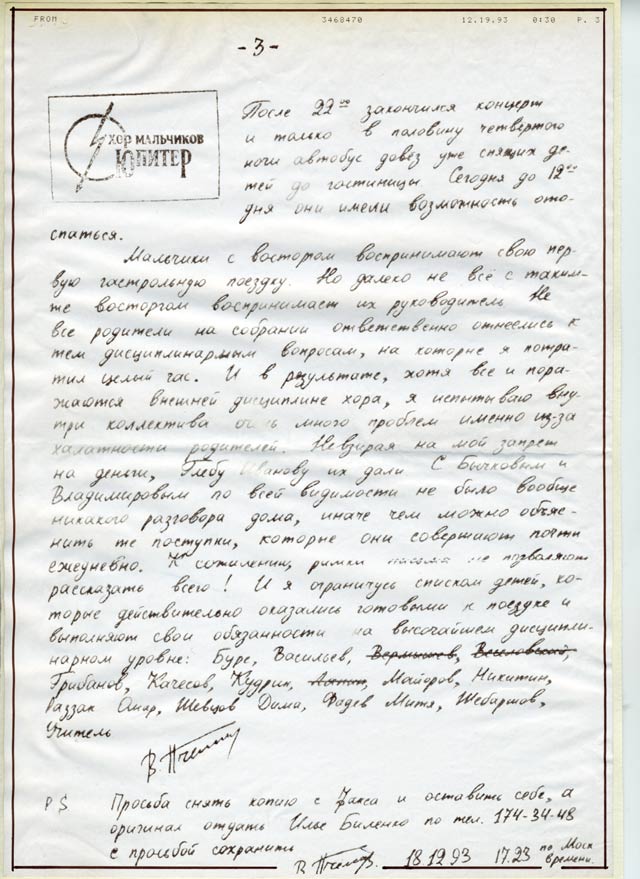 FROM 3468470 12.19.93 0:30 P. 3
- 3 -
ХОР МАЛЬЧИКОВ
ЮПИТЕР
После 22 00 закончился концерт
и только в половину четвертого
ночи автобус довёз уже спящих де-
тей до гостиницы. Сегодня до 12 00
дня они имели возможность ото-
спаться.
Мальчики с востором воспринимают свою пер-
вую гастрольную поездку. Но далеко не всё с таким-
же восторгом воспринимает их руководитель. Не
все родители на собрании ответственно отнеслись к
тем дисциплинарным вопросам, на которые я потра-
тил целый час. И в результате, хотя все и пора-
жаются внешней дисциплине хора, я испытываю вну-
три коллектива очень много проблем именно из-за
халатности родителей. Невзирая на мой запрет
на деньги, Глебу Иванову их дали. С Бычковым и
Владимировым по всей видимости не было вообще
никакого разговора дома, иначе чем можно объяс-
нить те поступки, которые они совершают почти
ежедневно. К сожалению, рамки письма не позволяют
рассказать всего! И я ограничусь списком детей, ко-
торые действительно оказались готовыми к поездке и
выполняют свои обязанности на высочайшем дисципли-
нарном уровне: Буре, Васильев, Вермишев, Веселовский,
Грибанов, Качесов, Кудрин, Майоров, Никитин,
Раззак Омар, Шевцов Дима, Фадев Митя, Шебаршов,
Учитель
В. Пчел
PS Просьба снять копию с факса и оставить себе, а
оригинал отдать Илье Биленко по тел. 174-34-48
с просьбой сохранить
18.12.93 17.23 по Моск
времени.